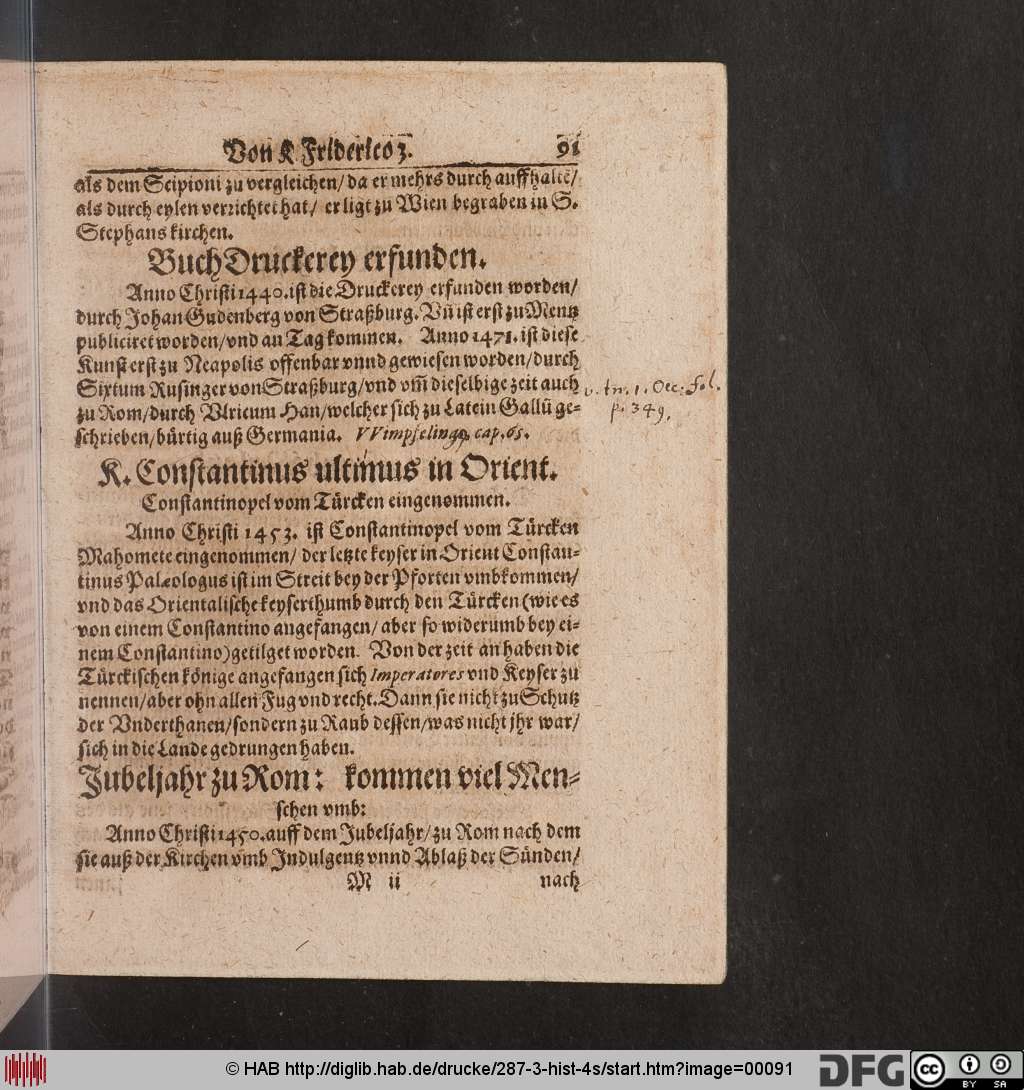 Von K Friderico 3. 91
als dem Scipioni zu vergleichen/ da er mehrs durch auffhaltē/
als durch eylen verrichtet hat/ er ligt zu Wien begraben in S.
Stephans kirchen.
Buch Druckerey erfunden.
Anno Christi 1440. ist die Druckerey erfunden worden/
durch Johan Gudenberg von Straßburg. Vn̄ ist erst zu Mentz
publiciret worden/ vnd an Tag kommen. Anno 1471. ist diese
Kunst erst zu Neapolis offenbar vnnd gewiesen worden/ durch
Sixtum Rusinger von Straßburg/ vnd vm̄ dieselbige zeit auch
zu Rom/ durch Vlricum Han/ welcher sich zu Latein Gallū ge-
schrieben/ bürtig auß Germania. VVimpfeling9, cap. 65.
v. tn. 1. Oec. fol.
p. 349.
K. Constantinus ultimus in Orient.
Constantinopel vom Türcken eingenommen.
Anno Christi 1453. ist Constantinopel vom Türcken
Mahomete eingenommen/ der letzte keyser in Orient Constan-
tinus Palæologus ist im Streit bey der Pforten vmbkommen/
vnd das Orientalische keyserthumb durch den Türcken (wie es
von einem Constantino angefangen/ aber so widerumb bey ei-
nem Constantino) getilget worden. Von der zeit an haben die
Türckischen könige angefangen sich Imperatores vnd Keyser zu
nennen/ aber ohn allen Fug vnd recht. Dann sie nicht zu Schutz
der Vnderthanen/ sondern zu Raub dessen/ was nicht jhr war/
sich in die Lande gedrungen haben.
Jubeljahr zu Rom: kommen viel Men-
schen vmb:
Anno Christi 1450. auff dem Jubeljahr/ zu Rom nach dem
sie auß der Kirchen vmb Indulgentz vnnd Ablaß der Sünden/
M ii nach
© HAB http://diglib.hab.de/drucke/287-3-hist-4s/start.htm?image=00091
DFG
cc BY SA